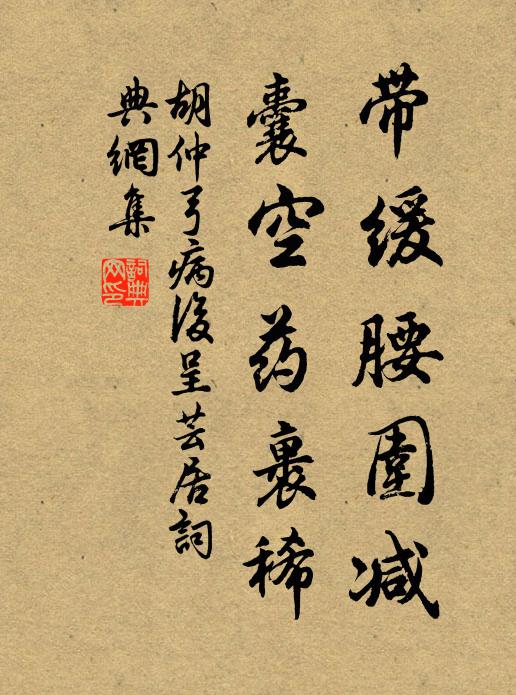 带缓腰围减
囊空药裹稀
胡仲弓病后呈芸居詞
典網集
詞典網印